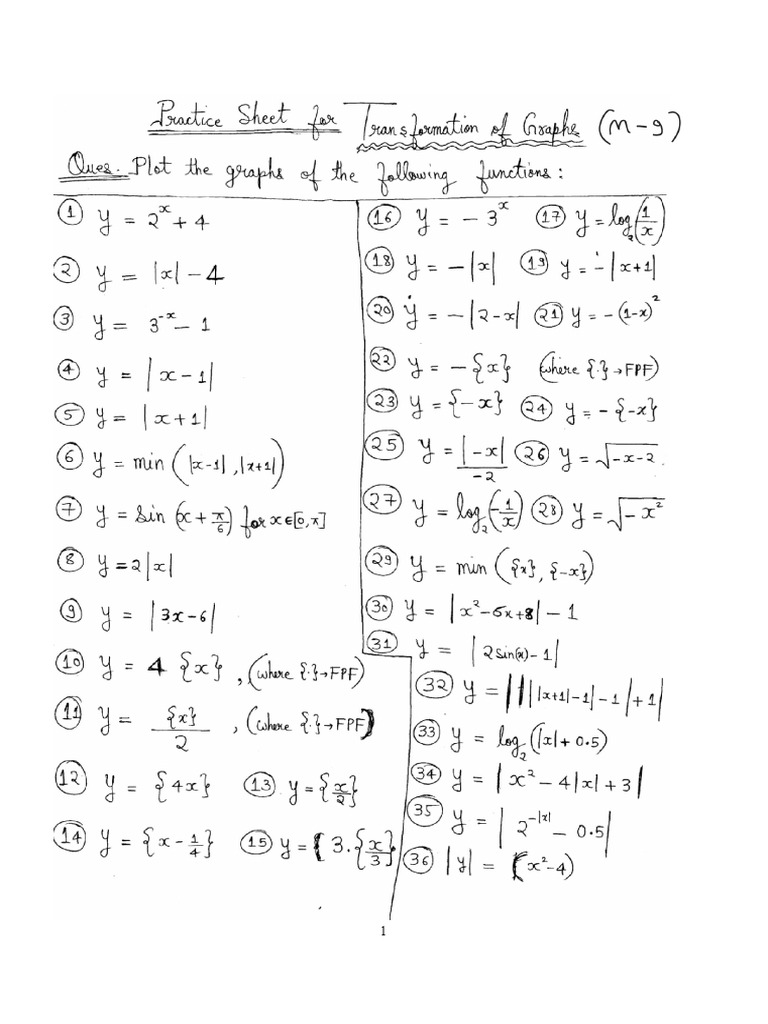 Practice Sheet for Transformation of Graphs (M-9)
Ques. Plot the graphs of the following functions:
① y = 2^x + 4
② y = |x| - 4
③ y = 3^-x - 1
④ y = |x - 1|
⑤ y = |x + 1|
⑥ y = min (|x-1|, |x+1|)
⑦ y = sin (x + π/6) for x∈[0, π]
⑧ y = 2|x|
⑨ y = |3x - 6|
⑩ y = 4 {x}, (where {·}→FPF)
⑪ y = {x}/2, (where {·}→FPF)
⑫ y = {4x} ⑬ y = {x/2}
⑭ y = {x - 1/4} ⑮ y = (3.{x/3}
⑯ y = -3^x ⑰ y = log₂(1/x)
⑱ y = -|x| ⑲ y = -|x+1|
⑳ y = -|2-x| ㉑ y = -(1-x)²
㉒ y = -{x} (where {·}→FPF)
㉓ y = {-x} ㉔ y = -{-x}
㉕ y = |-x|/-2 ㉖ y = √-x-2
㉗ y = log₂(-1/x) ㉘ y = √-x²
㉙ y = min ({x}, {-x})
㉚ y = |x²-6x+8| - 1
㉛ y = |2sin(x) - 1|
㉜ y = ||||x+1|-1|-1|+1|
㉝ y = log₂(|x| + 0.5)
㉞ y = |x² - 4|x| + 3|
㉟ y = |2^-|x| - 0.5|
㊱ |y| = (x²-4)
1